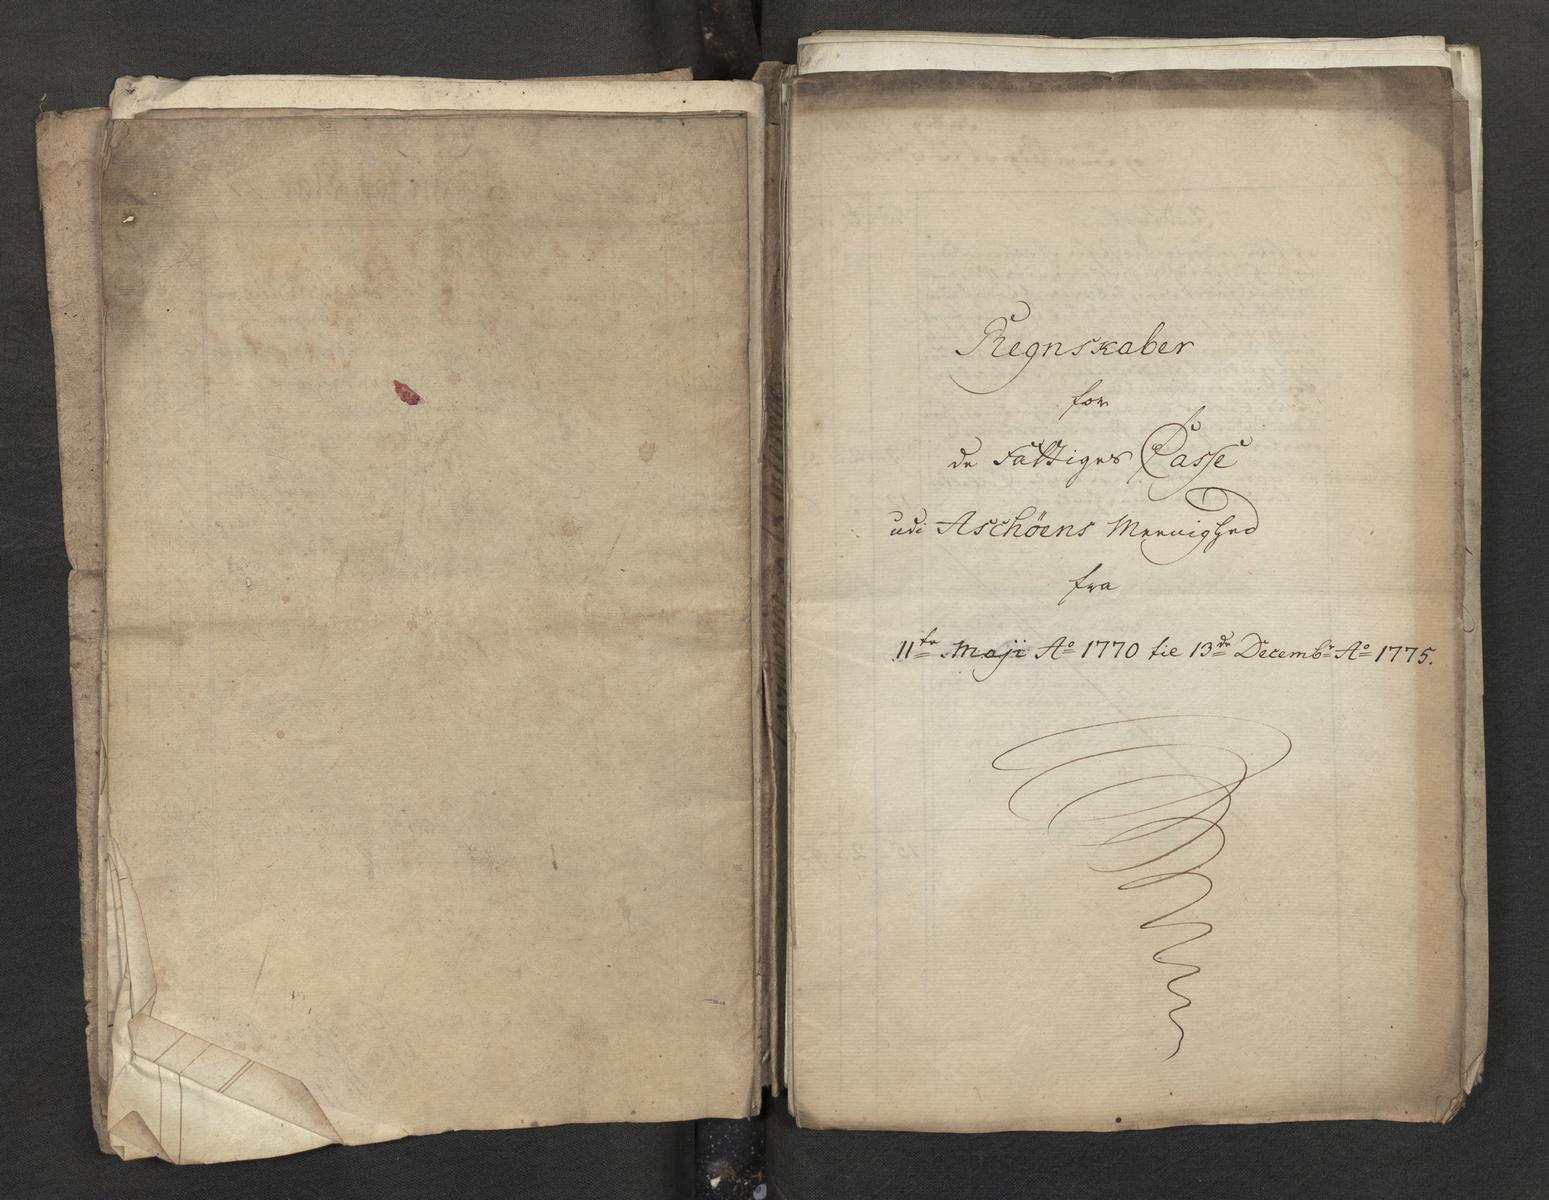 Regnskaber
for
de Fattiges Casse
udi Aschöens Meenighed
fra
11te Maji Ao 1770 til 13de Decembr Ao 1775.